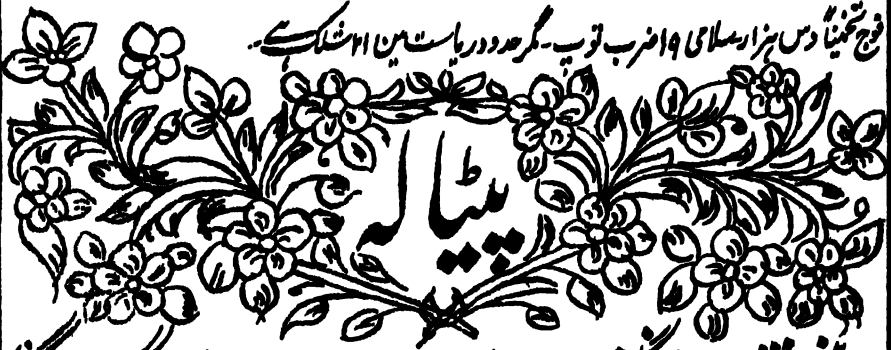 فوج تخمیناً دس ہزار سلامی ۱۹ ضرب توپ ۔ مگر حدود ریاست مین ۲۱ شلک ہے ۔
پٹیالہ